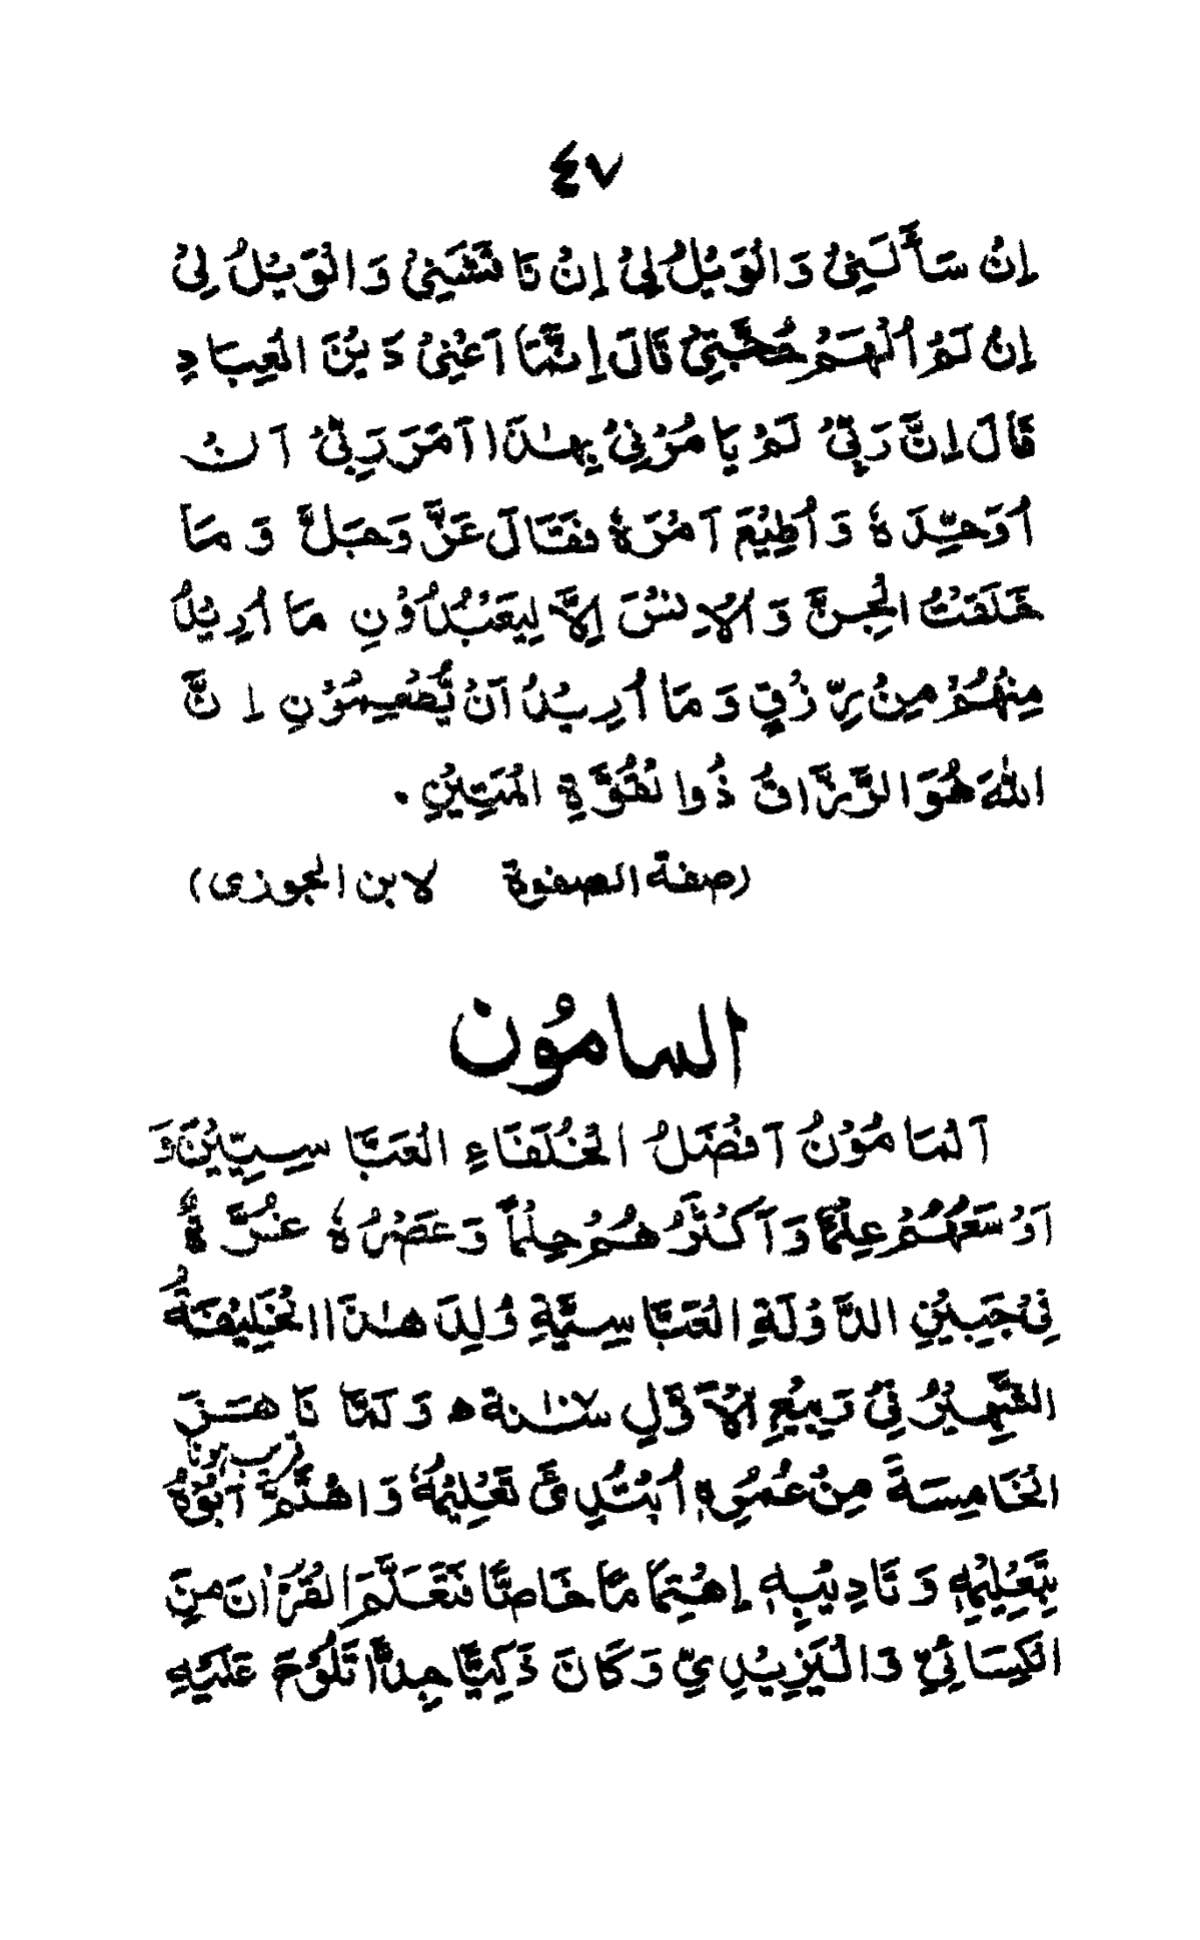 ٤٧
اِنْ سَأَلَنِيْ وَالْوَيْلُ لِيْ اِنْ نَاقَشَنِيْ وَالْوَيْلُ لِيْ
اِنْ لَمْ اُلْهَمْ حُجَّتِيْ قَالَ اِنَّمَا اَعْنِيْ دَيْنَ الْعِبَادِ
قَالَ اِنَّ رَبِّيْ لَمْ يَامُرْنِيْ بِهٰذَا اَمَرَ رَبِّيْ اَنْ
اُوَحِّدَهٗ وَاُطِيْعَ اَمْرَهٗ فَقَالَ عَزَّ وَجَلَّ وَمَا
خَلَقْتُ الْجِنَّ وَالْاِنْسَ اِلَّا لِيَعْبُدُوْنِ مَا اُرِيْدُ
مِنْهُمْ مِنْ رِّزْقٍ وَمَا اُرِيْدُ اَنْ يُّطْعِمُوْنِ اِنَّ
اللهَ هُوَ الرَّزَّاقُ ذُوا لْقُوَّةِ الْمَتِيْنِ.
(صفة الصفوة لابن الجوزى)
المامُون
اَلْمَامُوْنُ اَفْضَلُ الْخُلَفَاءِ الْعَبَّاسِيِّيْنَ وَ
اَوْسَعُهُمْ عِلْمًا وَاَكْثَرُهُمْ حِلْمًا وَعَصْرُهٗ غُرَّةٌ
فِيْ جَبِيْنِ الدَّوْلَةِ الْعَبَّاسِيَّةِ وُلِدَ هٰذَا الْخَلِيْفَةُ
الشَّهِيْرُ فِيْ رَبِيْعِ الْاَوَّلِ سنة ه وَلَمَّا نَاهَزَ
قريب ہونا
الْخَامِسَةَ مِنْ عُمُرِهٖ اُبْتُدِئَ تَعْلِيْمُهٗ وَاهْتَمَّ اَبُوْهُ
بِتَعْلِيْمِهٖ وَتَادِيْبِهٖ اِهْتِمَامًا خَاصًّا فَتَعَلَّمَ الْقُرْاٰنَ مِنَ
الْكِسَائِيِّ وَالْيَزِيْدِيِّ وَكَانَ ذَكِيًّا جِدًّا تَلُوْحُ عَلَيْهِ